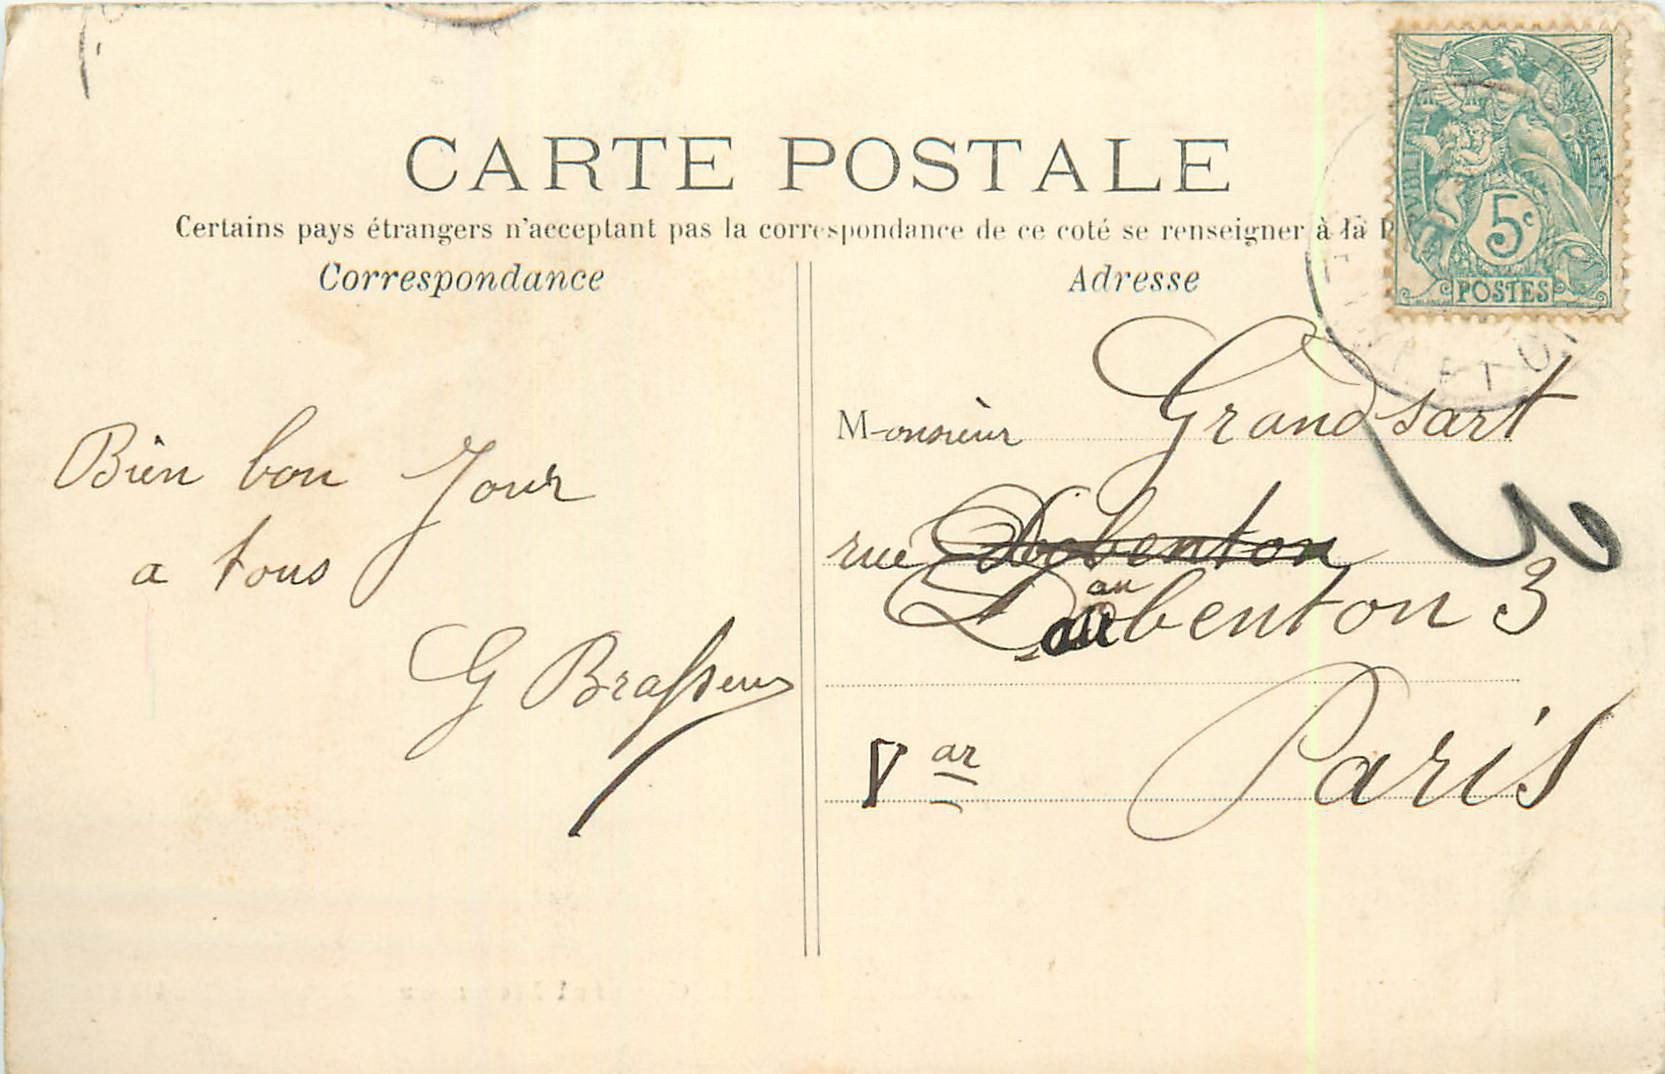 CARTE POSTALE
Certains pays étrangers n'acceptant pas la correspondance de ce coté se renseigner à la P
Correspondance
Adresse
5c
POSTES
Bien bon Jour
a tous
G Brasseur
Monsieur Grandsart
rue Dobenton
au
Daubenton 3
V ar Paris